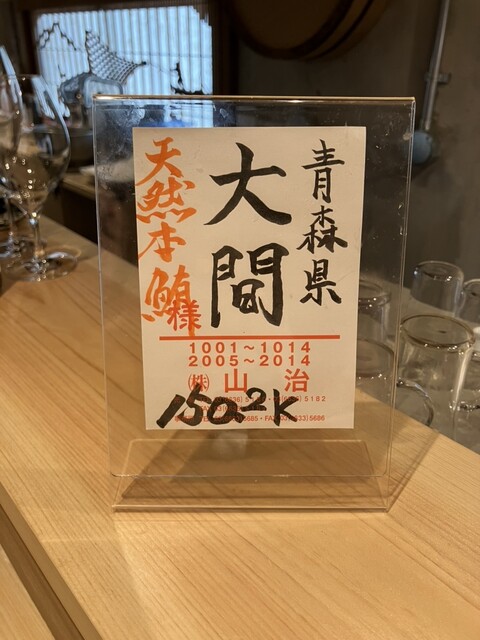 青森県
大間
天然本鮪
様
1001~1014
2005~2014
㈱山治
150.2K